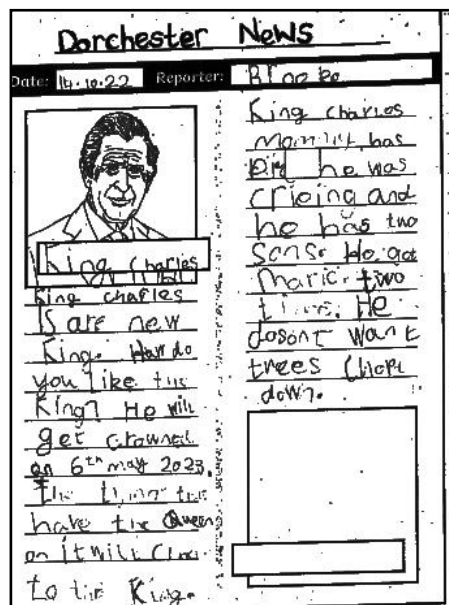 Dorchester News
Date: 14.10.22 Reporter: Brooke
King Charles
King charles
is are new
King. How do
you like the
King? He will
get crowned
on 6th may 2023.
the
have the Queen
on it will
to the King.
King charles
has
Did he was
crieing and
he has two
sons. He got
two
He
dosont want
trees chopt
down.